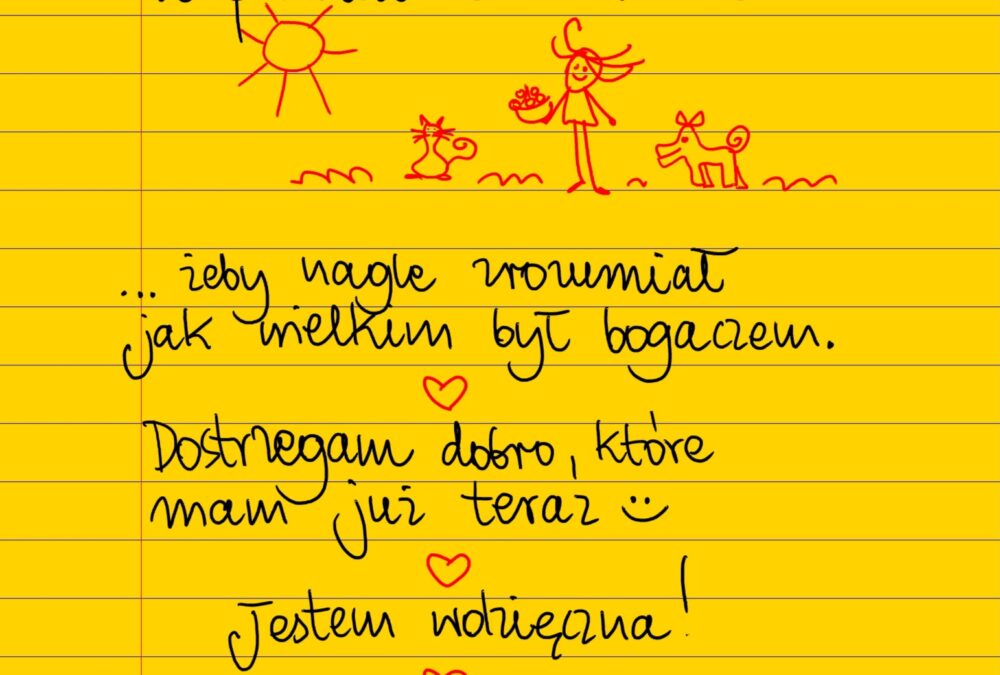 ... żeby nagle zrozumiał
jak wielkim był bogaczem.
Dostrzegam dobro, które
mam już teraz
Jestem wdzięczna!